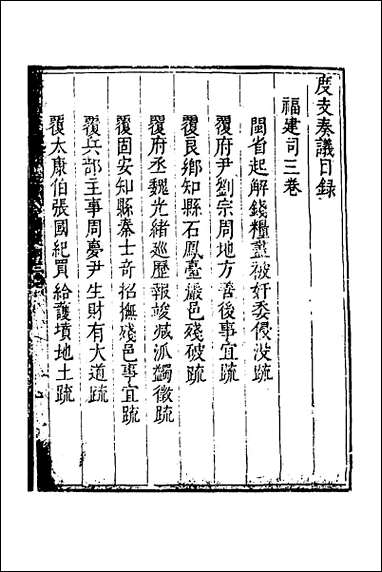 度支奏議目錄
福建司三巻
閩省起解錢糧盡被奸委侵沒疏
覆府尹劉宗周地方善後事宜疏
覆良鄉知縣石鳳臺嚴邑殘破疏
覆府丞魏光緒巡歷報竣減派蠲徵疏
覆固安知縣秦士奇招撫殘邑事宜疏
覆兵部主事周慶尹生財有大道疏
覆太康伯張國紀買給護墳地土疏